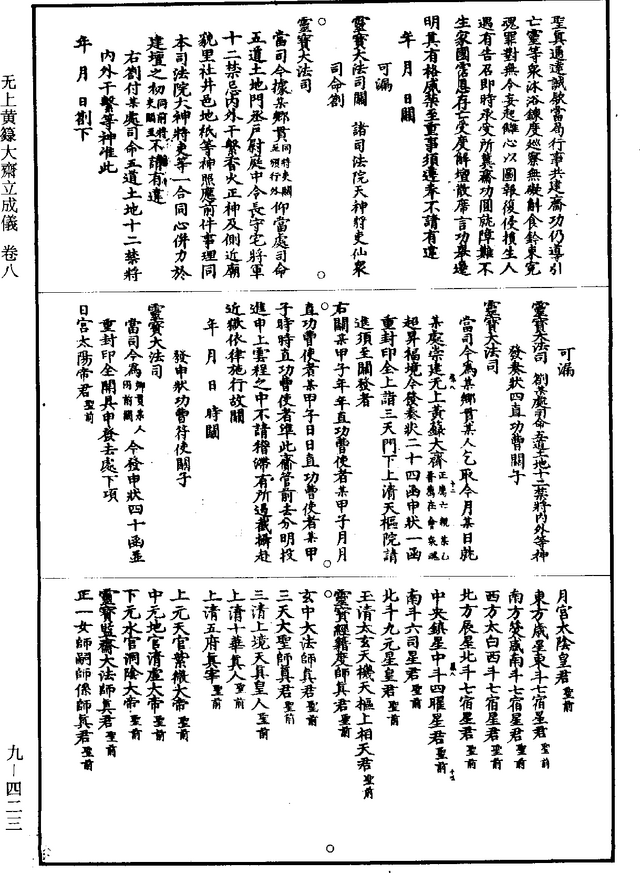 聖真通達誠款當爲行事共建齋功仍導引
亡靈等衆沐浴鍊度巡察無礙斛食鈴束冤
魂罪對無令妄起離心以圖報復侵損生人
遇有告召即時承受所兾齋功圓就障難不
生家國霑恩存亡受度解壇散席言功舉遷
明具有格威禁至重事須遵奉不請有違
年 月 日關
可漏
靈寳大法司關 諸司法院天神將吏仙衆
司命劄
靈寳大法司
當司令據某鄉貫同將吏關至須行外仰當處司命
五道土地門丞戶尉庭中令長守宅將軍
十二禁忌内外干繫香火正神及側近廟
貌里社井邑地祇等神照應前件事理同
本司法院大神將吏等一合同心併力於
建壇之初同前將吏關至不請有違
右劄付某處司命五道土地十二禁將
内外干繫等神准此
年 月 日劄下
可漏
靈寳大法司 劄某處司命五道土地十二禁將内外等神
發奏狀四直功曹關子
靈寳大法司
當司今爲某鄉貫某人乞取今月某日就
某處崇建无上黃籙大齋正薦六親某乙普薦在會衆魂
超昇福境今發奏狀二十四函申狀一函
重封印全上詣三天門下上清天樞院請
進須至關發者
右關某甲子年年直功曹使者某甲子月月
直功曹使者某甲子日日直功曹使者某甲
子時時直功曹使者準此齋管前去分明投
進申上雲程之中不請稽滯有所過截攝赴
近嶽依律施行故關
年 月 日 時關
發申狀功曹符使關子
靈寳大法司
當司今爲鄉貫某人同前關今發申狀四十函並
重封印全關具申發去處下項
日宮太陽帝君聖前
月宮太陰皇君聖前
東方歲星東斗七宿星君聖前
南方熒惑南斗七宿星君聖前
西方太白西斗七宿星君聖前
北方辰星北斗七宿星君聖前
中央鎮星中斗四曜星君聖前
南斗六司星君聖前
北斗九元星皇君聖前
玉清太玄天機天樞上相天君聖前
靈寳經籍度師真君聖前
玄中大法師真君聖前
三天大聖師真君聖前
三清上境天真皇人聖前
上清十華真人聖前
上清五府真宰聖前
上元天官紫微大帝聖前
中元地官清虛大帝聖前
下元水官洞陰大帝聖前
靈寳監齋大法師真君聖前
正一女師嗣師係師真君聖前
无上黃籙大齋立成儀 卷八
九—四二三